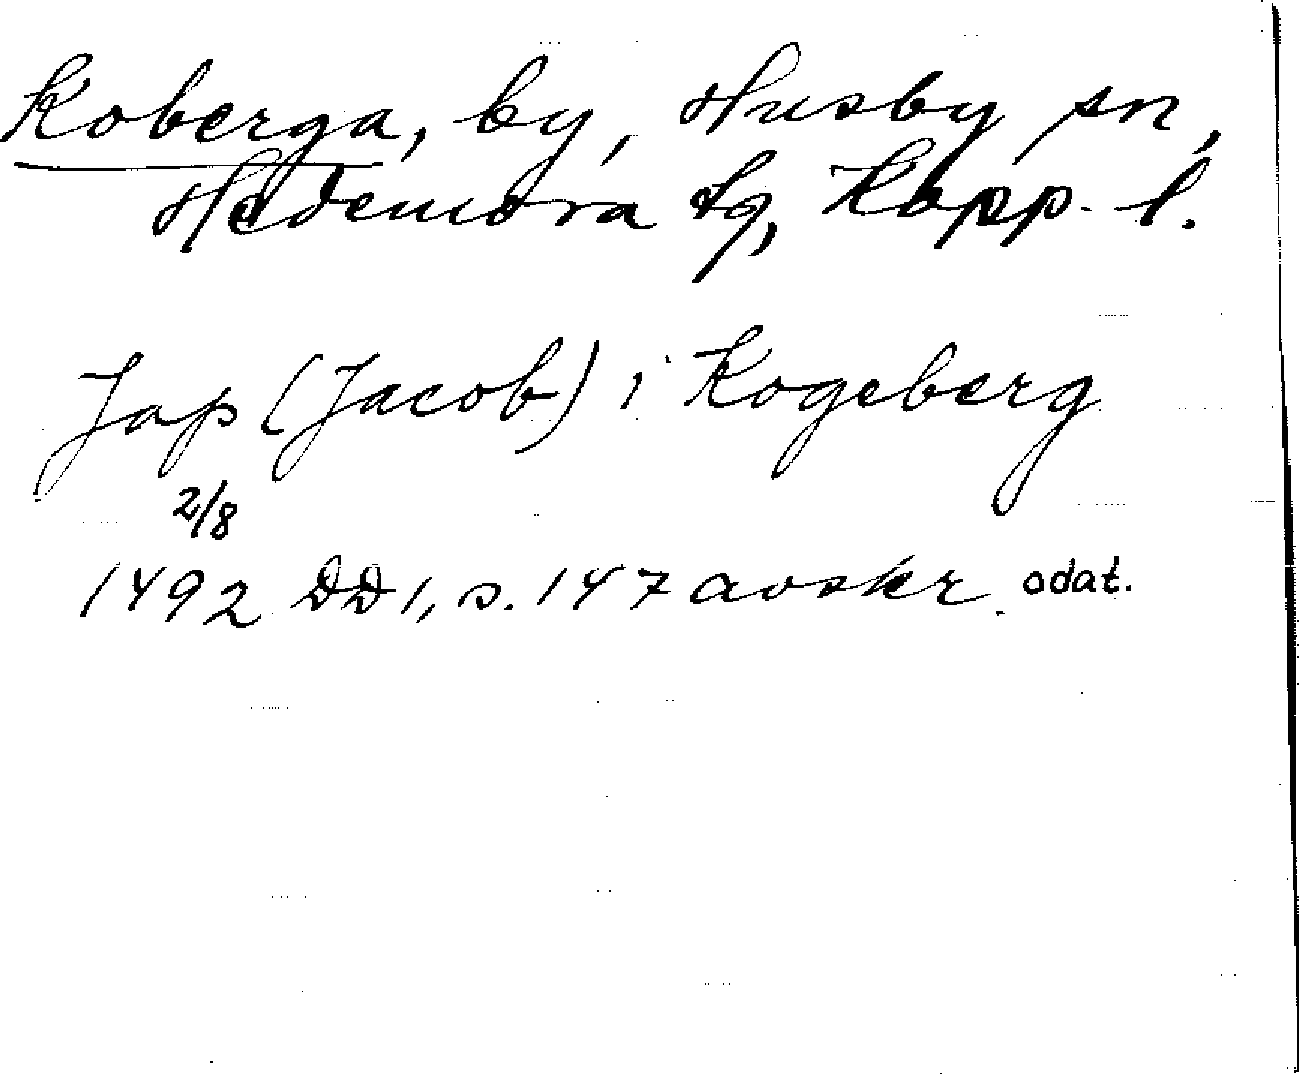 Koberga, by, Husby sn,
Hedemora tg, Kopp. l.
Jap (Jacob) i Kogeberg
2/8
1492 DD 1, s. 147 avskr. odat.